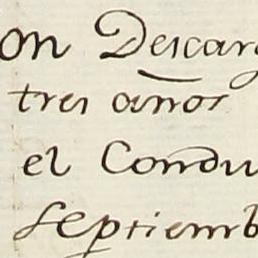 on Descarg
tres años
el Condu
Septiemb